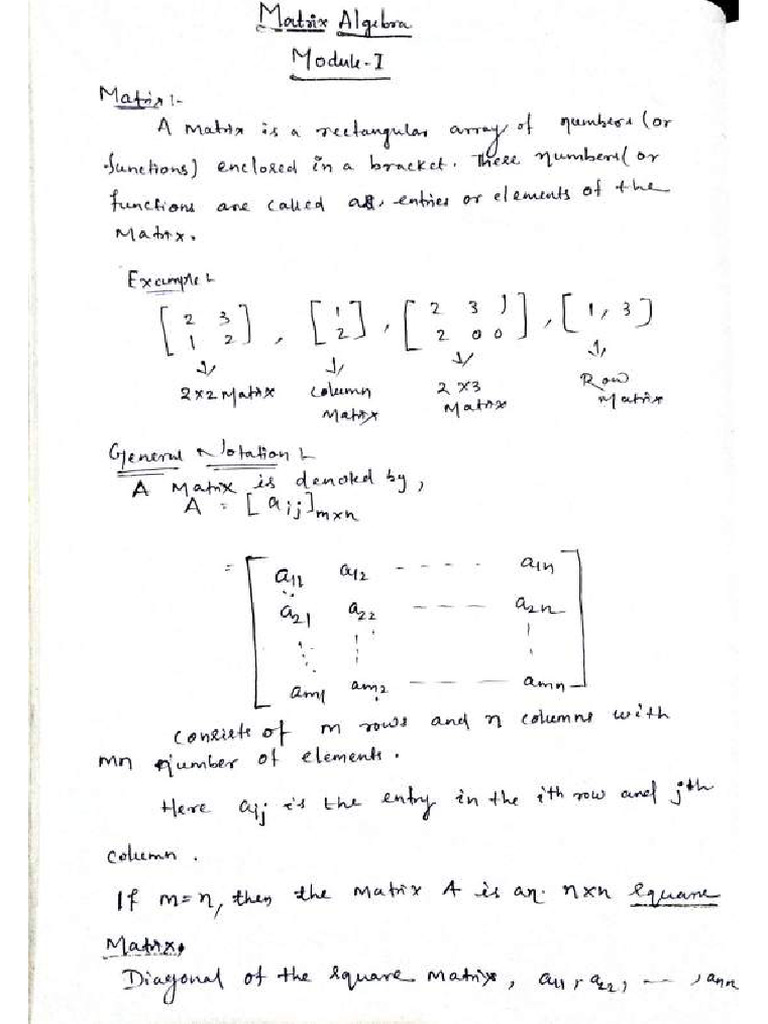 Matrix Algebra
Module-I
Matrix :-
A Matrix is a rectangular array of numbers (or
functions) enclosed in a bracket. These numbers (or
functions are called as, entries or elements of the
Matrix.
Example :
[2 3 / 1 2], [1 / 2], [2 3 1 / 2 0 0], [1, 3]
2x2 Matrix Column Matrix 2x3 Matrix Row Matrix
General Notation :
A Matrix is denoted by,
A = [aij]mxn
= [a11 a12 - - - - a1n
a21 a22 - - - a2n
am1 am2 - - - - amn]
Consists of m rows and n columns with
mn number of elements.
Here aij is the entry in the ith row and jth
column.
If m=n, then the Matrix A is an nxn square
Matrix.
Diagonal of the square matrix, a11, a22, ---, ann